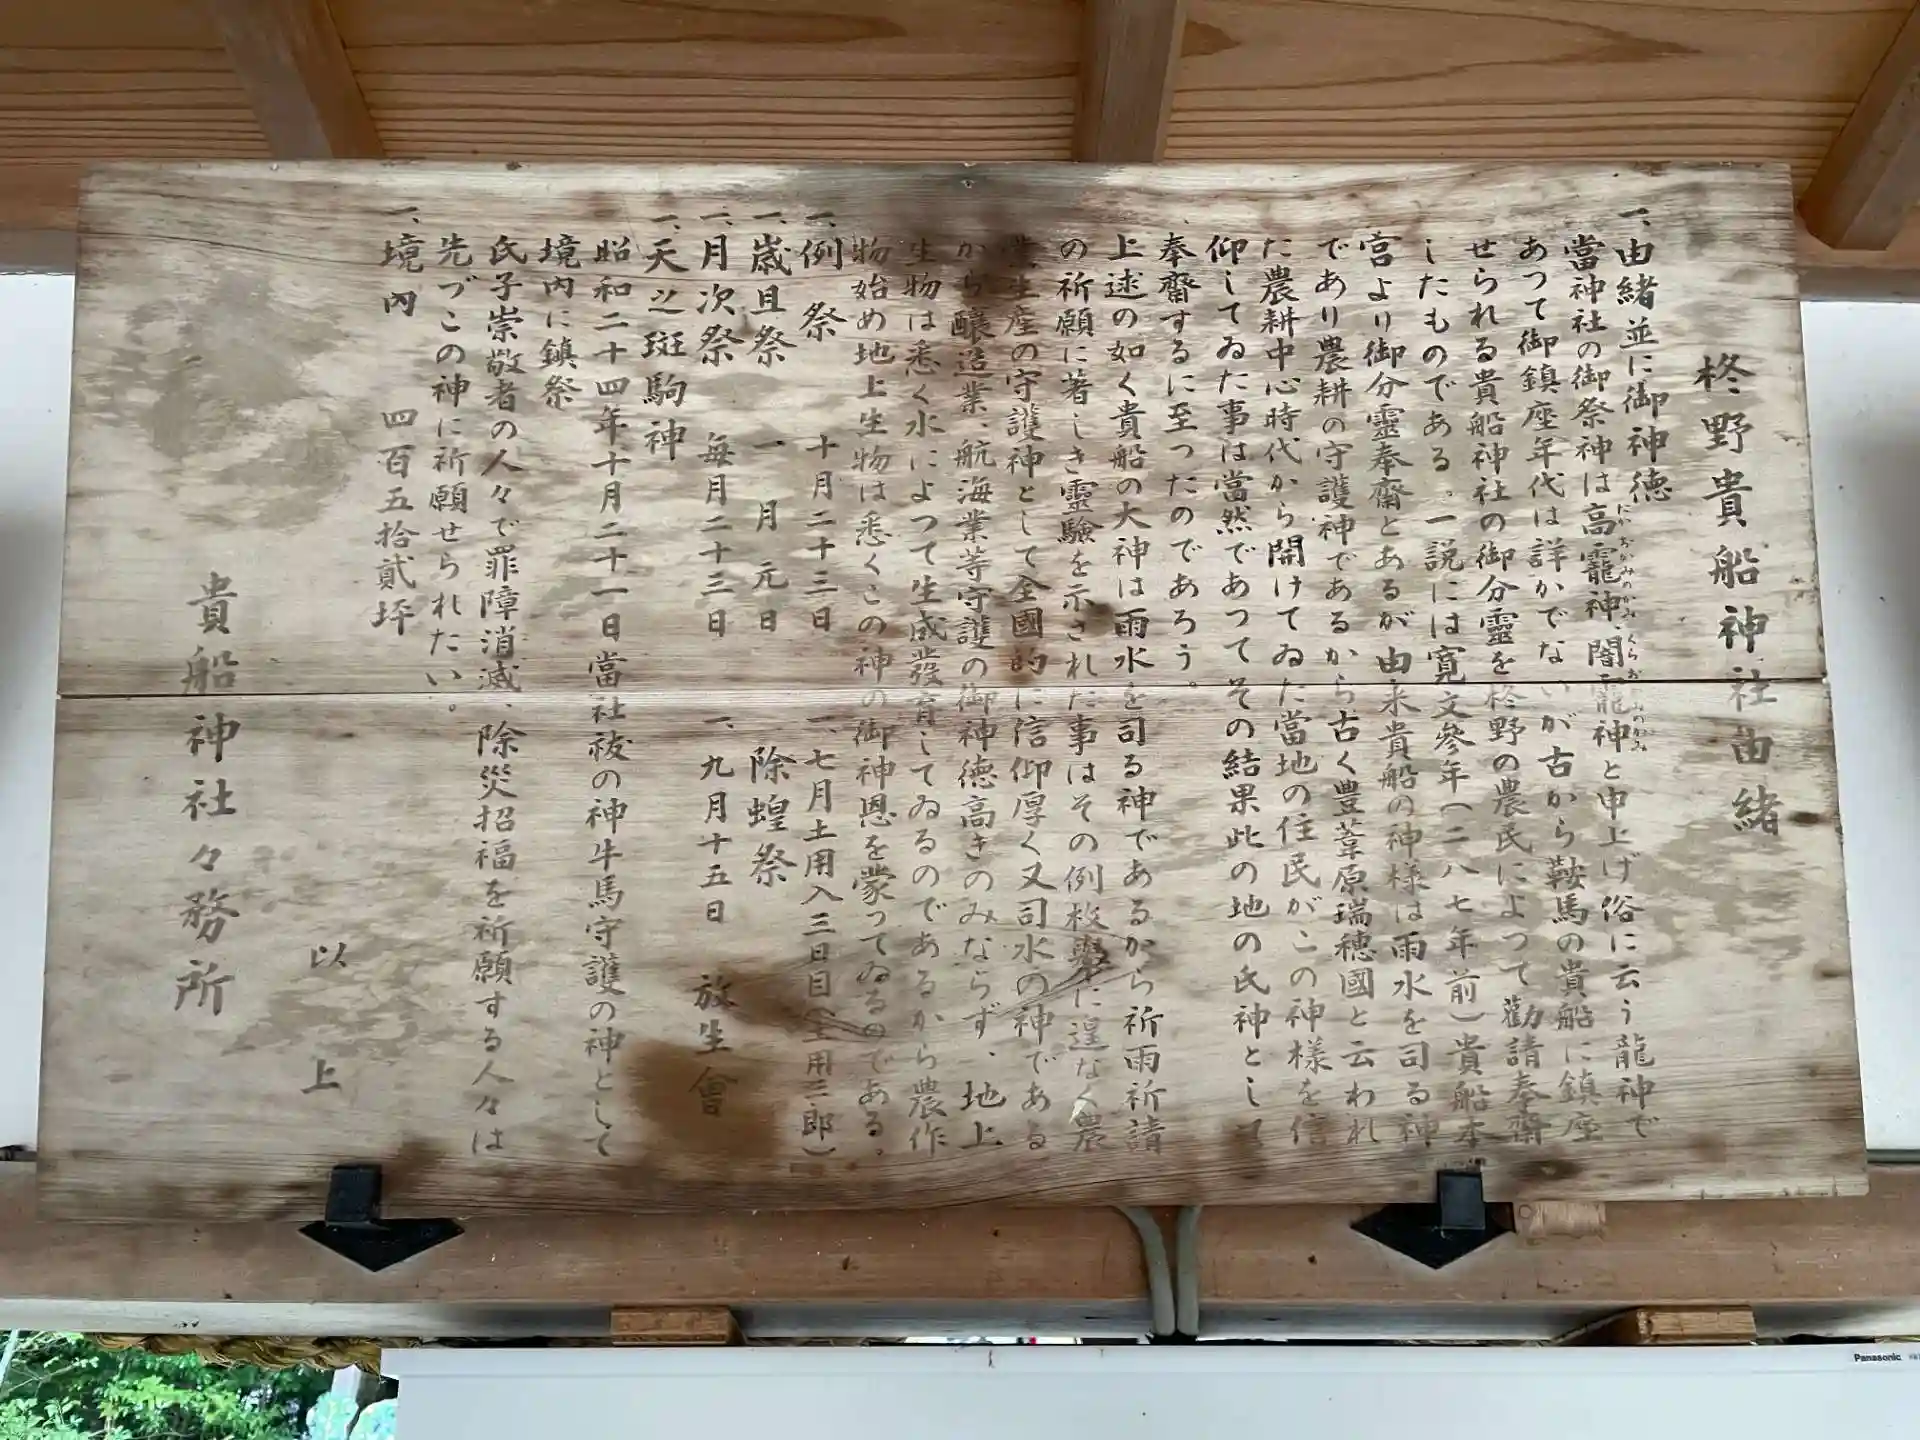 柊野貴船神社由緒
一、由緒並に御神徳
當神社の御祭神は高龗神、闇龗神と申上げ俗に云う龍神で
あつて御鎮座年代は詳かでないが古から鞍馬の貴船に鎮座
せられる貴船神社の御分靈を柊野の農民によつて勸請奉齋
したものである。一説には寛文參年(二八七年前)貴船本
宮より御分靈奉齋とあるが由来貴船の神様は雨水を司る神
であり農耕の守護神であるから古く豊葦原瑞穂國と云われ
た農耕中心時代から開けてゐた當地の住民がこの神様を信
仰してゐた事は當然であつてその結果此の地の氏神として
奉齋するに至つたのであろう。
上述の如く貴船の大神は雨水を司る神であるから祈雨祈請
の祈願に著しき靈験を示された事はその例枚擧に遑なく農
業生産の守護神として全國的に信仰厚く又司水の神である
から醸造業、航海業等守護の御神徳高きのみならず、地上
生物は悉く水によつて生成發育してゐるのであるから農作
物始め地上生物は悉くこの神の御神恩を蒙ってゐるのである。
一、例祭 十月二十三日 一、七月土用入三日目(土用三郎)
一、歳旦祭 一月元日 除蝗祭
一、月次祭 毎月二十三日 一、九月十五日 放生會
一、天之斑駒神
昭和二十四年十月二十一日當社祓の神牛馬守護の神として
境内に鎮祭
氏子崇敬者の人々で罪障消滅、除災招福を祈願する人々は
先づこの神に祈願せられたい。
一、境内 四百五拾貳坪
以上
貴船神社々務所
Panasonic